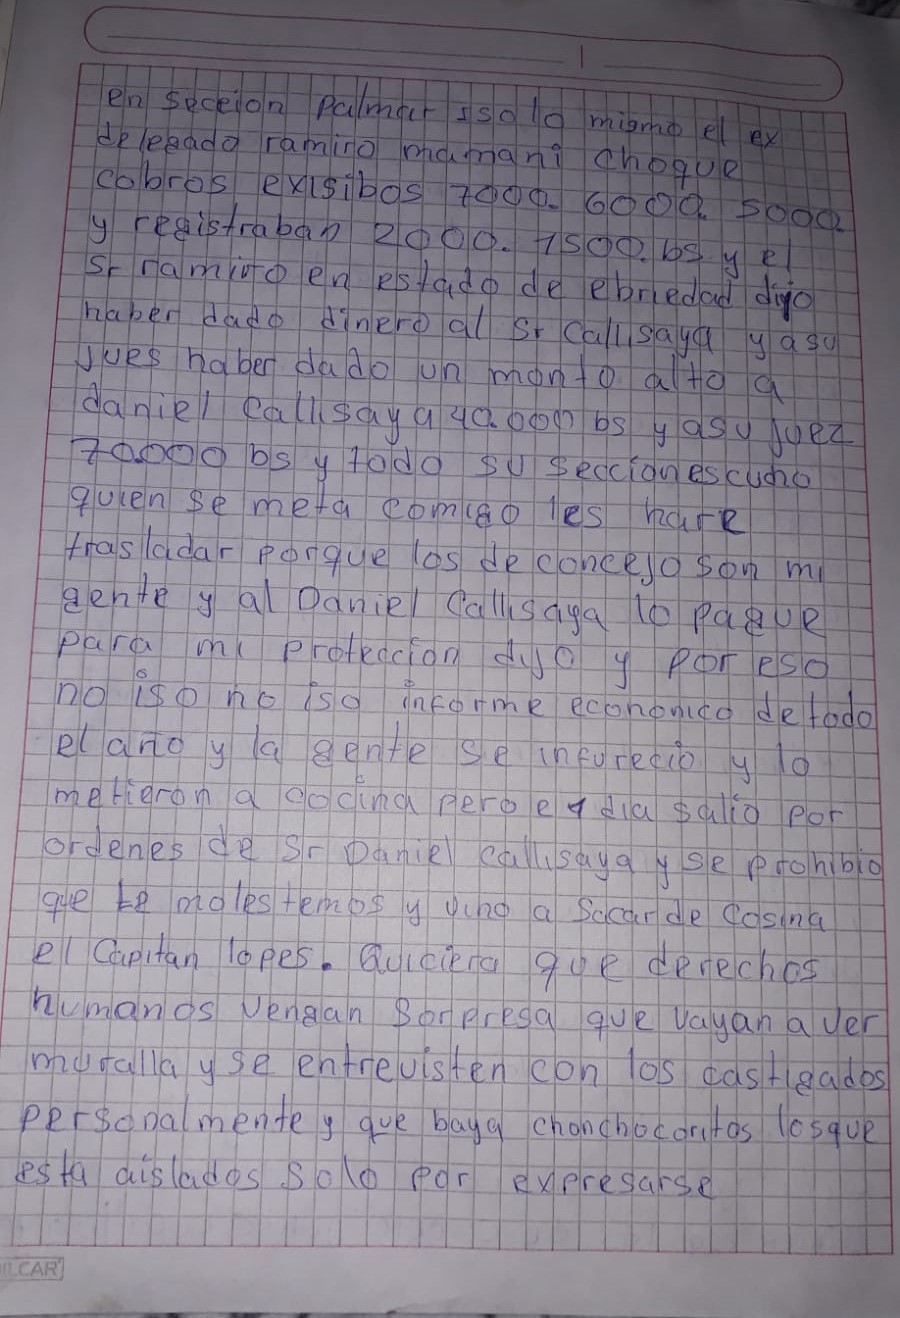 en seccion palmar iso lo mismo el ex
delegado ramiro mamani choque
cobros exisibos 7000. 6000. 5000.
y registraban 2000. 1500. bs y el
Sr ramiro en estado de ebriedad dijo
haber dado dinero al Sr Callisaya y asu
jues haber dado un monto alto a
daniel Callisaya 40.000 bs y asu juez
70.000 bs y todo su seccion escucho
quien se meta comigo les hare
trasladar porque los de concejo son mi
gente y al Daniel Callisaya lo pague
para mi proteccion dijo y por eso
no iso no iso informe economico de todo
el año y la gente se infurecio y lo
metieron a cocina pero el dia salio por
ordenes de Sr Daniel callisaya y se prohibio
que le molestemos y vino a Sacar de Cosina
el Capitan lopes. Quiciera que derechos
humanos vengan Sorpresa que vayan a ver
muralla y se entrevisten con los castigados
personalmente y que baya chonchocoritos losque
esta aislados solo por expresarse
ILCAR